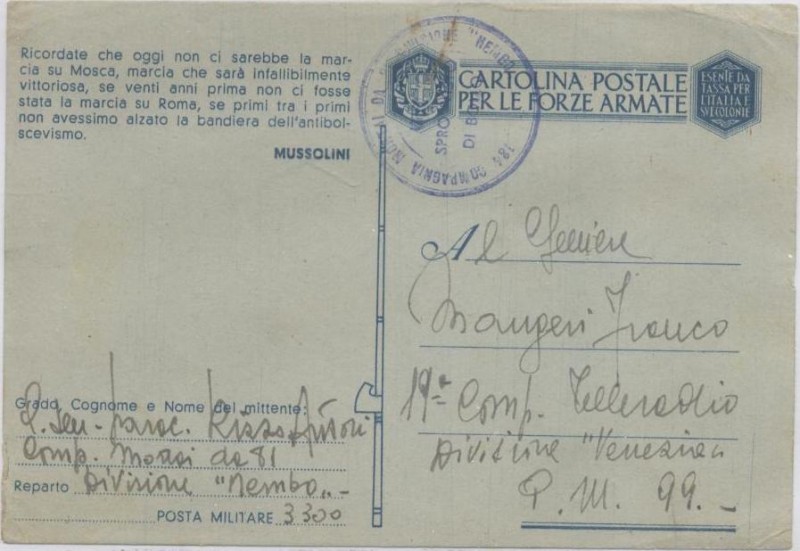 Ricordate che oggi non ci sarebbe la mar-
cia su Mosca, marcia che sarà infallibilmente
vittoriosa, se venti anni prima non ci fosse
stata la marcia su Roma, se primi tra i primi
non avessimo alzato la bandiera dell'antibol-
scevismo.
MUSSOLINI
CARTOLINA POSTALE
PER LE FORZE ARMATE
ESENTE DA
TASSA PER
L'ITALIA E
SUE COLONIE
184 COMPAGNIA MORTAI DA DIVISIONE "NEMBO
SPRO
DI B
Al Geniere
Maugeri Franco
19ª Comp. Teleradio
Divisione "Venezia"
P. M. 99.-
Grado, Cognome e Nome del mittente:
parac. Rizzo
Comp. Mortai da 81
Reparto Divisione "Nembo" -
POSTA MILITARE 3300